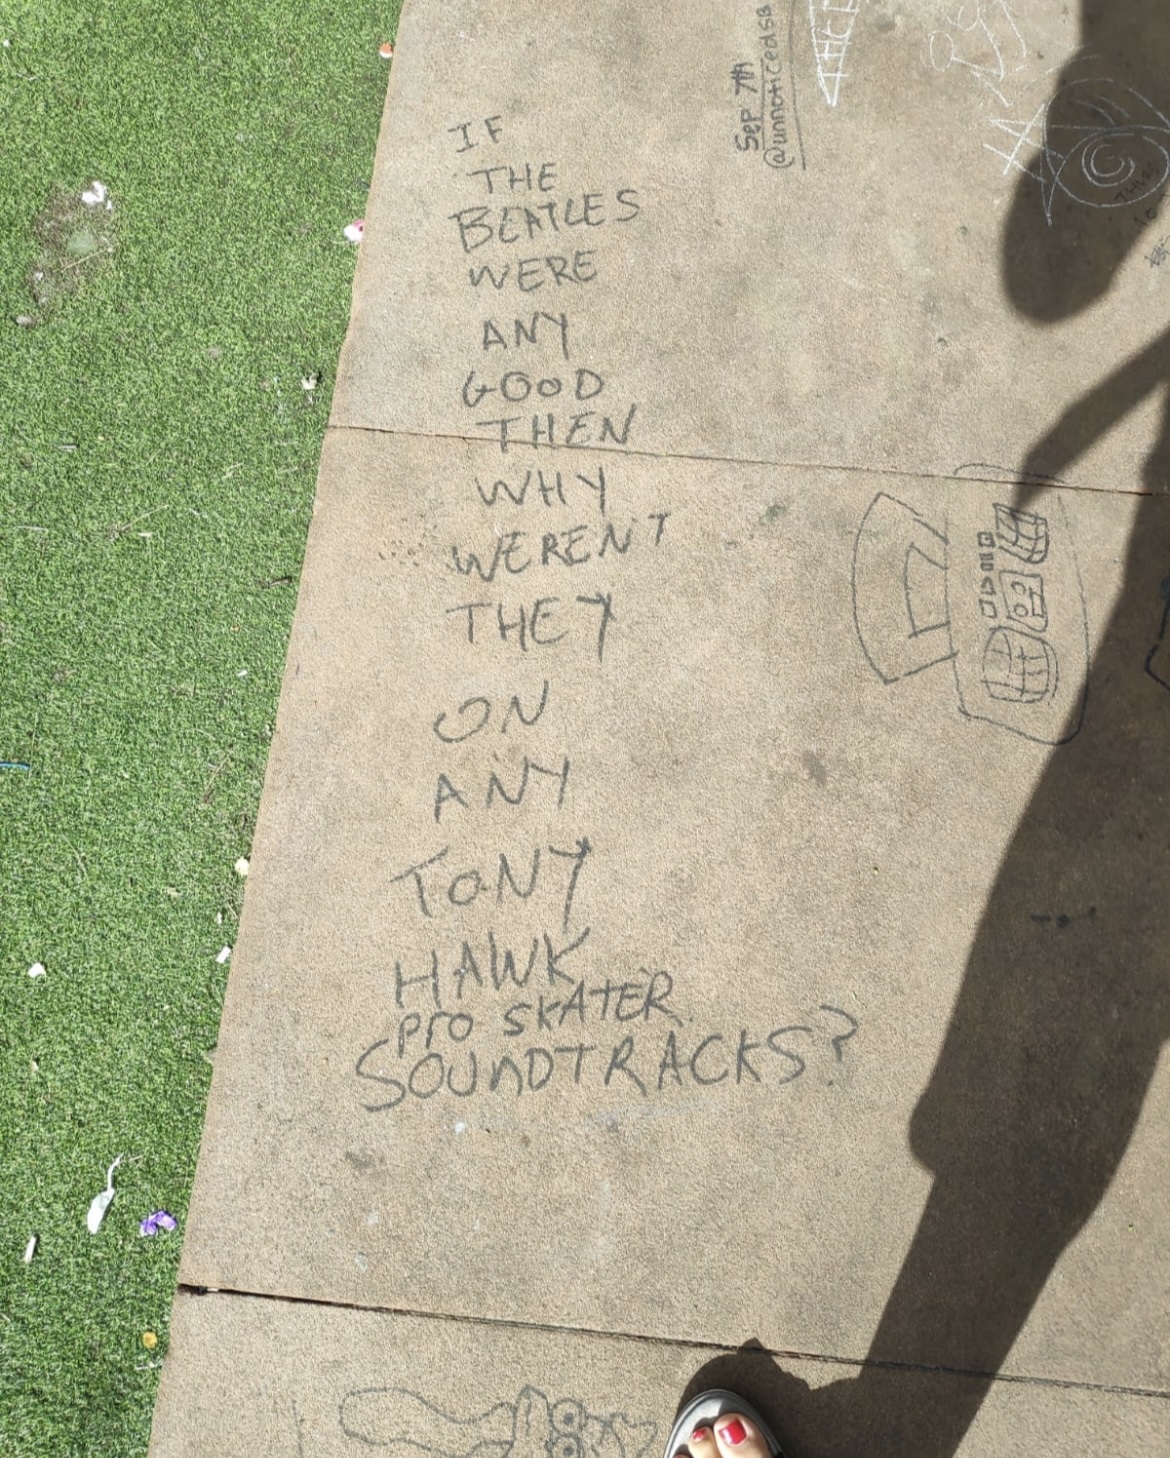 IF
THE
BEATLES
WERE
ANY
GOOD
THEN
WHY
WEREN'T
THEY
ON
ANY
TONY
HAWK
Pro SKATER
SOUNDTRACKS?
Sep 7th
@unnoticedsB